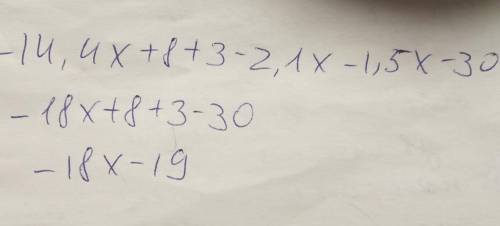 -14,4x+8+3-2,1x-1,5x-30
-18x+8+3-30
-18x-19